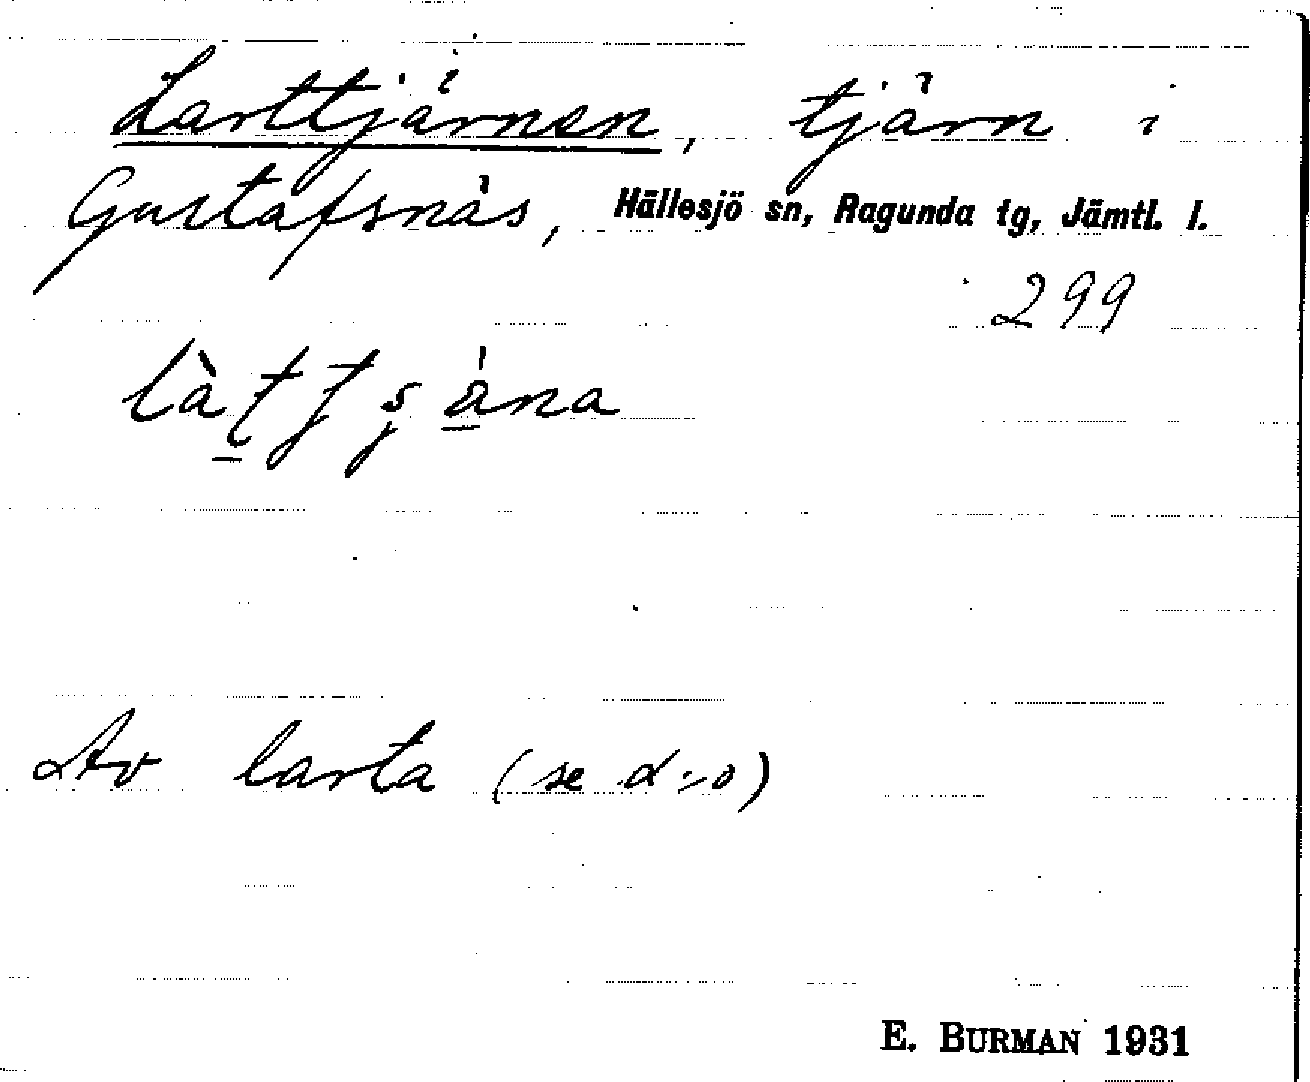 Larttjärnen, tjärn i
Gustafsnäs, Hällesjö sn, Ragunda tg, Jämtl. l.
299
Av larta (se d:o)
E. BURMAN 1931